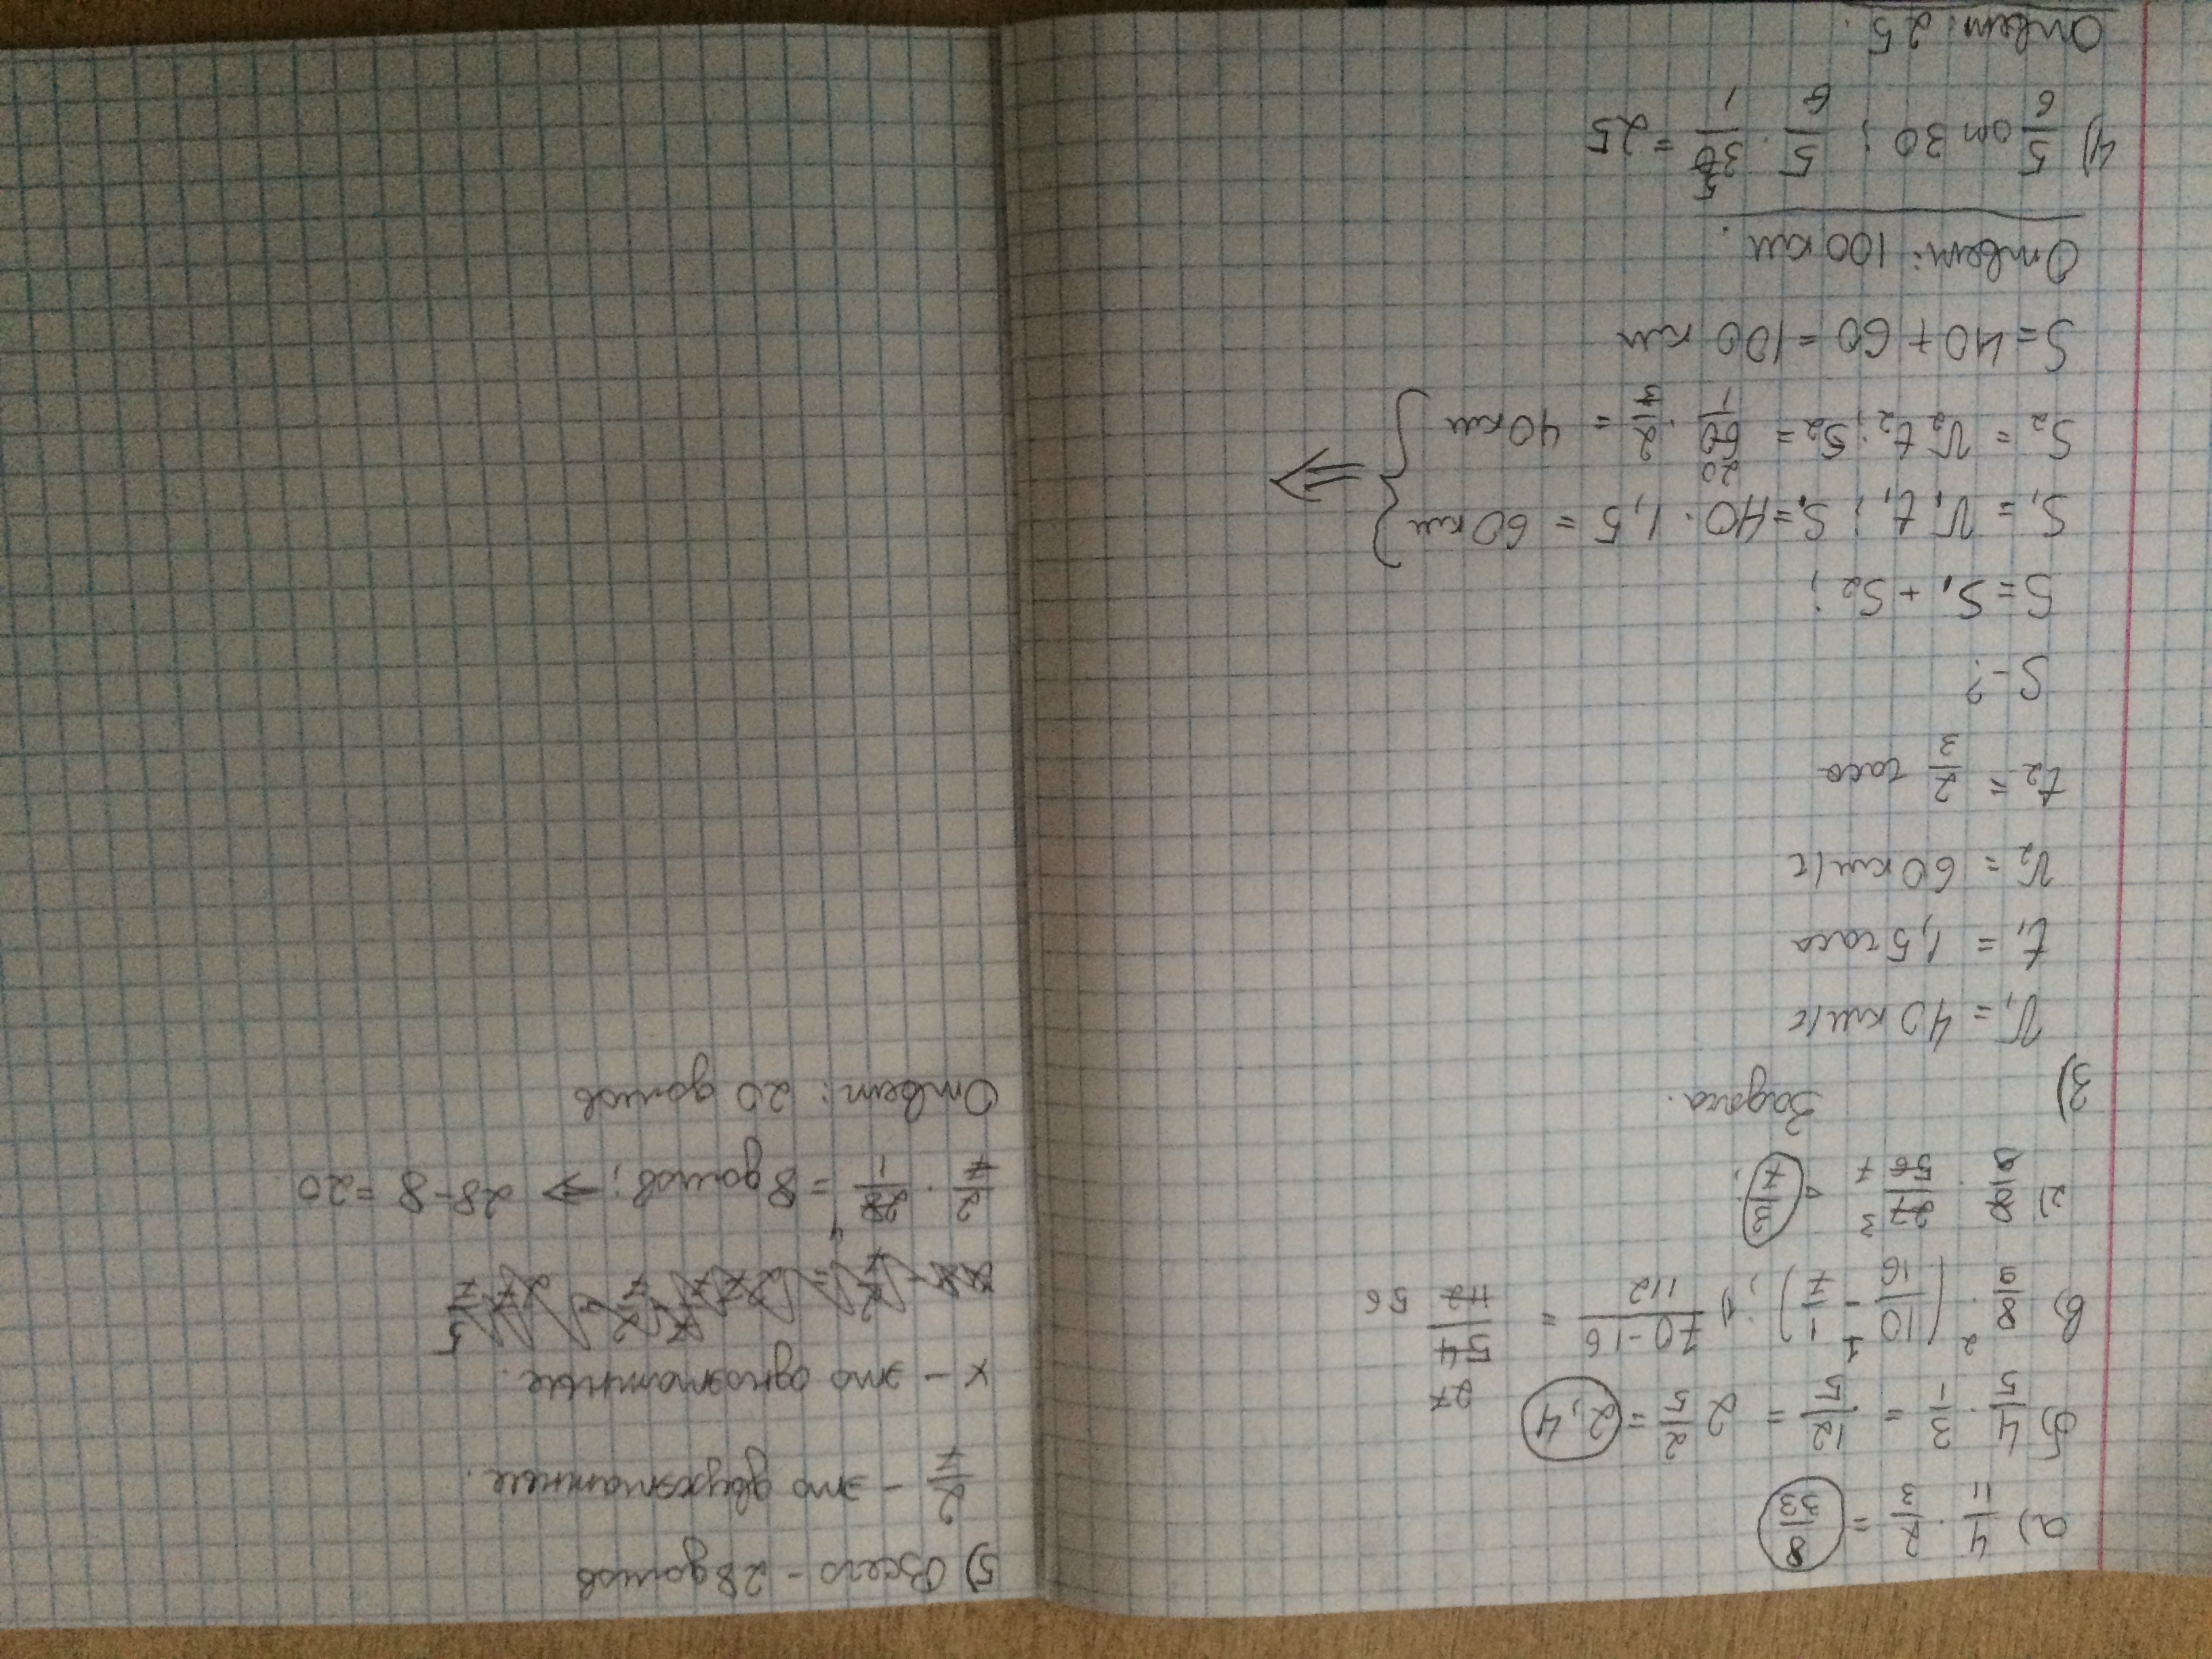 а) 4/11 · 2/3 = 8/33
б) 4/5 · 3/1 = 12/5 = 2 2/5 = 2,4
в) 8/9 · (10/16 - 1/7); 1) 70-16/112 = 54/112 27 56
2) 8/9 · 27/56 3 7 = 3/7.
3) Задача.
V₁ = 40 км/ч
t₁ = 1,5 часа
V₂ = 60 км/ч
t₂ = 2/3 часа
S - ?
S = S₁ + S₂;
S₁ = V₁ t₁; S₁ = 40 · 1,5 = 60 км
S₂ = V₂ t₂; S₂ = 60/1 20 · 2/3 = 40 км } ⇒
S = 40 + 60 = 100 км
Ответ: 100 км.
4) 5/6 от 30; 5/6 · 30/1 5 = 25
Ответ: 25.
5) Всего - 28 домов
2/7 - это двухэтажные.
x - это одноэтажные.
2/7 · 28/1 4 = 8 домов; ⇒ 28-8=20
Ответ: 20 домов